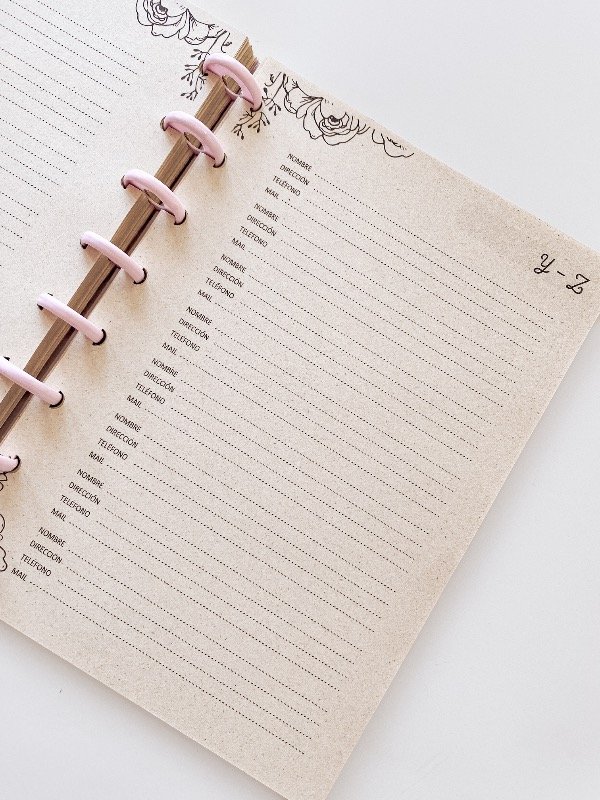 Y - Z
NOMBRE
DIRECCIÓN
TELÉFONO
MAIL
NOMBRE
DIRECCIÓN
TELÉFONO
MAIL
NOMBRE
DIRECCIÓN
TELÉFONO
MAIL
NOMBRE
DIRECCIÓN
TELÉFONO
MAIL
NOMBRE
DIRECCIÓN
TELÉFONO
MAIL
NOMBRE
DIRECCIÓN
TELÉFONO
MAIL
NOMBRE
DIRECCIÓN
TELÉFONO
MAIL
NOMBRE
DIRECCIÓN
TELÉFONO
MAIL